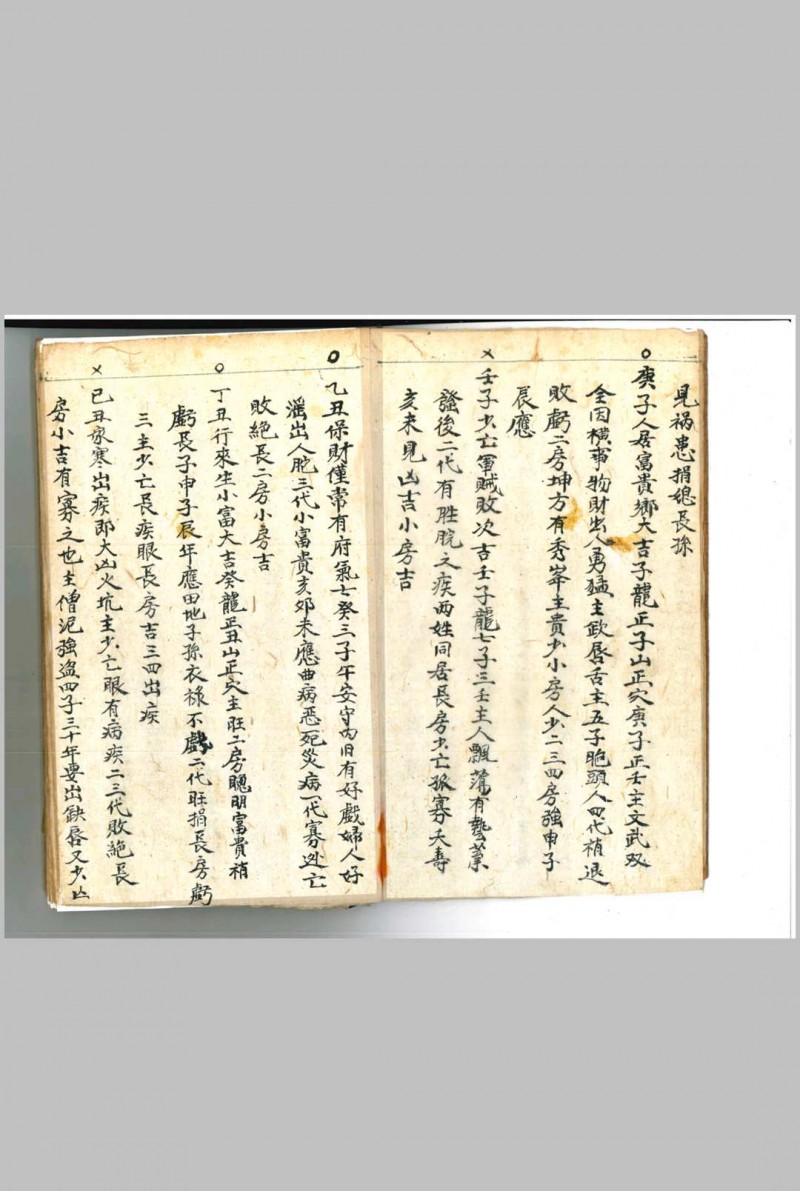 見禍患損媳長孫
○
庚子人居富貴鄉大吉子龍正子山正穴庚子正壬主文武双
全因橫事物財出人勇猛主歐唇舌主五子跑頭人四代稍退
敗虧二房坤方有秀峯主貴少小房人少二三四房強申子
辰應
×
壬子少亡軍賊敗次吉壬子龍七子三壬主人飄蕩有藝業
發後二代有胜脘之疾両姓同居長房少亡孤寡夭壽
亥未見凶吉小房吉
○
乙丑保財僅常有府氣七癸三子午安守內旧有好戲婦人好
滛出人肥三代小富貴亥卯未應曲病惡死災病一代寡迯亡
敗絕長二房小房吉
○
丁丑行來生小富大吉癸龍正丑山正穴主旺二房聰明富貴稍
虧長子申子辰年應田地子孫衣祿不虧二代旺捐長房虧
三主少亡長疾眼長房吉三四出疾
×
己丑家寒出疾即大凶火坑主少亡眼有病疾二三代敗絕長
房小吉有寡之也主僧泥強盜四子三十年要出缺唇又少凶